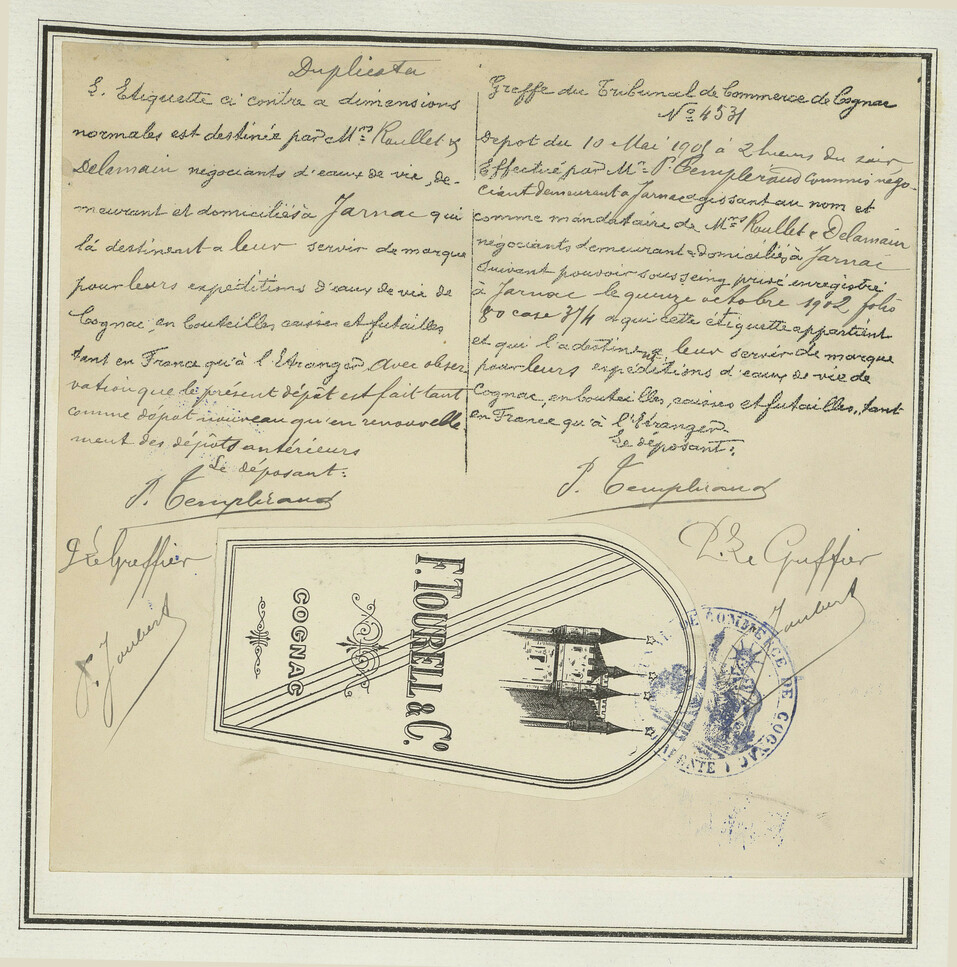 Duplicata
L. Etiquette ci contre a dimensions
normales est destinée par Mrs Roullet &
Delamain négociants d'eaux de vie, de-
meurant et domiciliés à Jarnac qui
la destinent a leur servir de marque
pour leurs expéditions d'eaux de vie de
Cognac, en bouteilles caisses et futailles
tant en France qu'à l'Etranger Avec obser
vation que le présent dépôt est fait tant
comme dépôt nouveau qu'en renouvelle
ment des dépôts antérieurs
Le déposant:
P. Templeraud
P. Le Greffier
P. Joubert
Greffe du Tribunal de Commerce de Cognac
No 4531
Depot du 10 Mai 190 à 2 heures du soir
Effectué par Mr P. Templeraud commis négo-
ciant demeurant a Jarnac agissant au nom et
comme mandataire de Mrs Roullet & Delamain
négociants demeurant & domiciliés à Jarnac
suivant pouvoir sous seing privé enregistré
à Jarnac le quinze octobre 1902 folio
80 case 374 a qui cette étiquette appartient
et qui l'a destinent, leur servir de marque
pour leurs expéditions d'eaux de vie de
Cognac, en bouteilles, caisses et futailles, tant
en France qu'à l'Etranger
Le déposant:
P. Templeraud
P. Le Greffier
Joubert
F. TOURELL & Co.
COGNAC
DE COMMERCE DE COGNAC